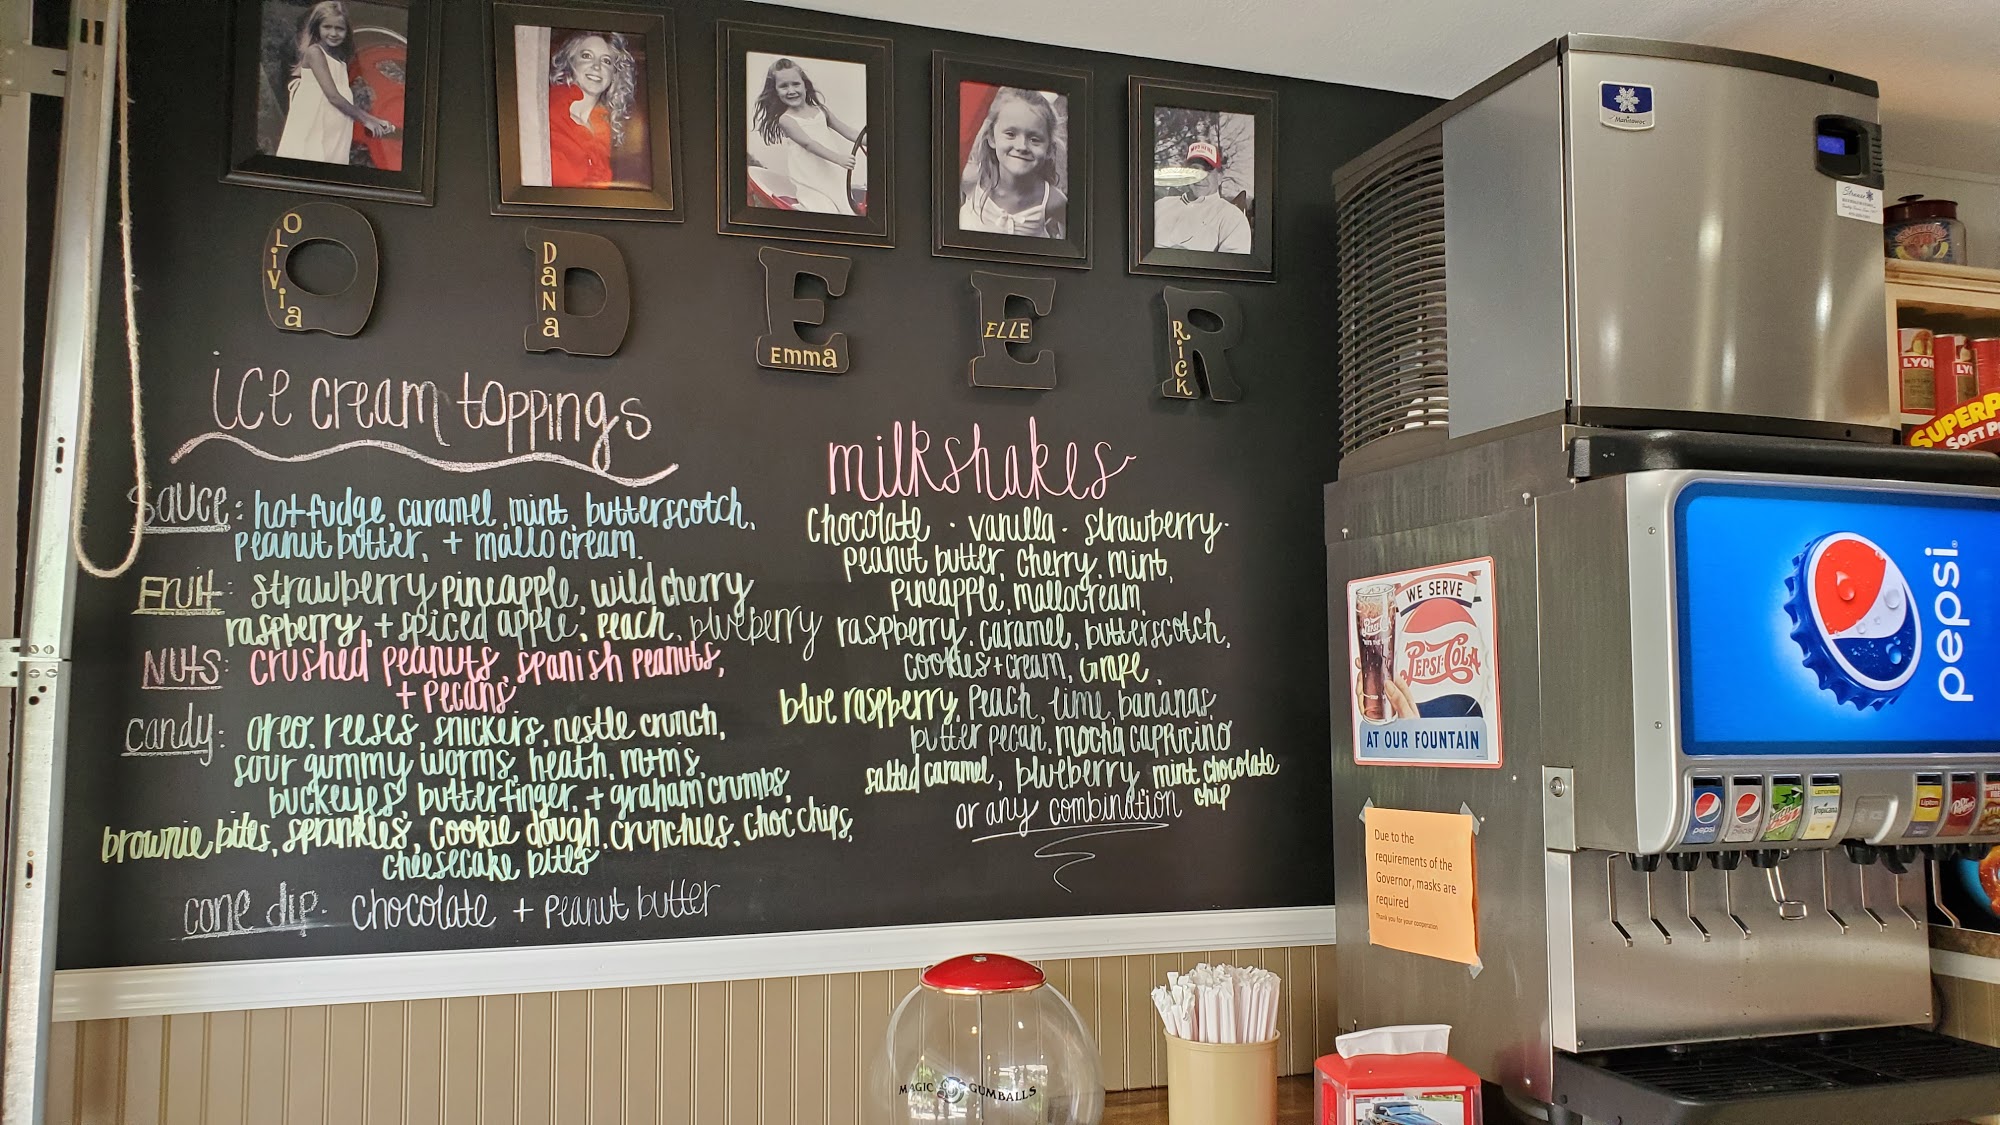 O D E E R
OLiVia
DaNa
Emma
ELLE
RiCK
ice cream toppings
sauce: hot fudge, caramel, mint, butterscotch,
peanut butter, + mallo cream.
Fruit: strawberry, pineapple, wild cherry
raspberry, + spiced apple, peach, blueberry
NUTS: crushed peanuts, spanish peanuts,
+ pecans
candy: oreo, reeses, snickers, nestle crunch,
sour gummy worms, heath, m+m's,
buckeyes, butterfinger, + graham crumbs,
brownie bites, sprinkles, cookie dough, crunchies, choc chips,
cheesecake bites
cone dip. chocolate + peanut butter
milkshakes
chocolate · vanilla · strawberry ·
peanut butter, cherry, mint,
pineapple, mallocream,
raspberry, caramel, butterscotch,
cookies + cream, Grape,
blue raspberry, peach, lime, bananas
butter pecan, mocha cappucino
salted caramel, blueberry, mint chocolate
chip
or any combination
Manitowoc
WE SERVE
PEPSI-COLA
AT OUR FOUNTAIN
Due to the
requirements of the
Governor, masks are
required
Thank you for your cooperation
pepsi
pepsi
pepsi
Tropicana
Lipton
LYON
LY
SUPERP
SOFT P
MAGIC GUMBALLS